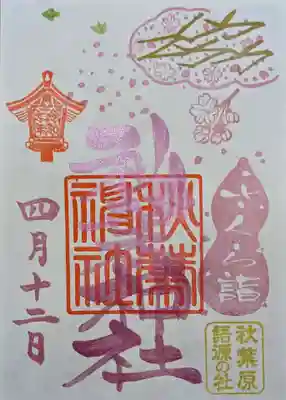 さくら詣
秋葉神社
秋葉
神社
四月十二日
秋葉原
語源の社